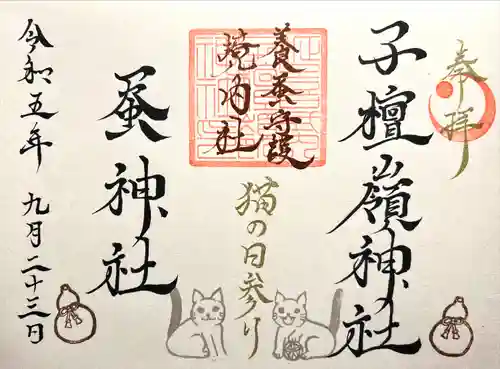 奉拝
子檀嶺神社
養蚕守護
境内社
猫の日参り
蚕神社
令和五年 九月二十三日